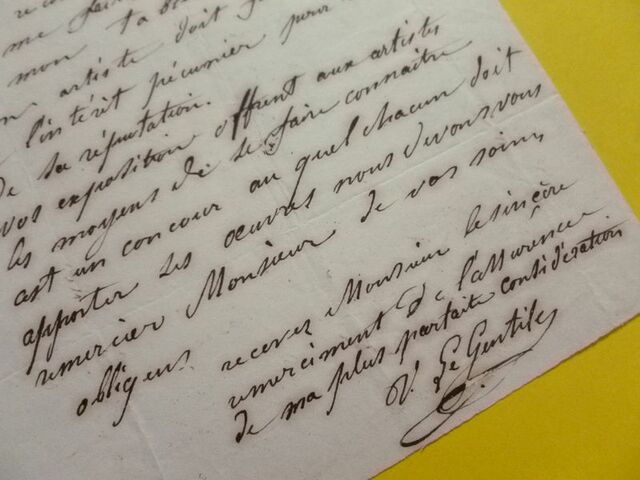 me faire
mon
artiste doit
l'intérit pécunier pour
de sa réputation.
vos exposition offrent aux artistes
les moyens de se faire connaitre
c'est un concour au quel chacun doit
apporter ses œuvres nous devons vous
remercier Monsieur de vos soins
obligens recevez Monsieur le sinçère
remerciment et l'assurence
de ma plus parfaite considération
V. Le Gentile